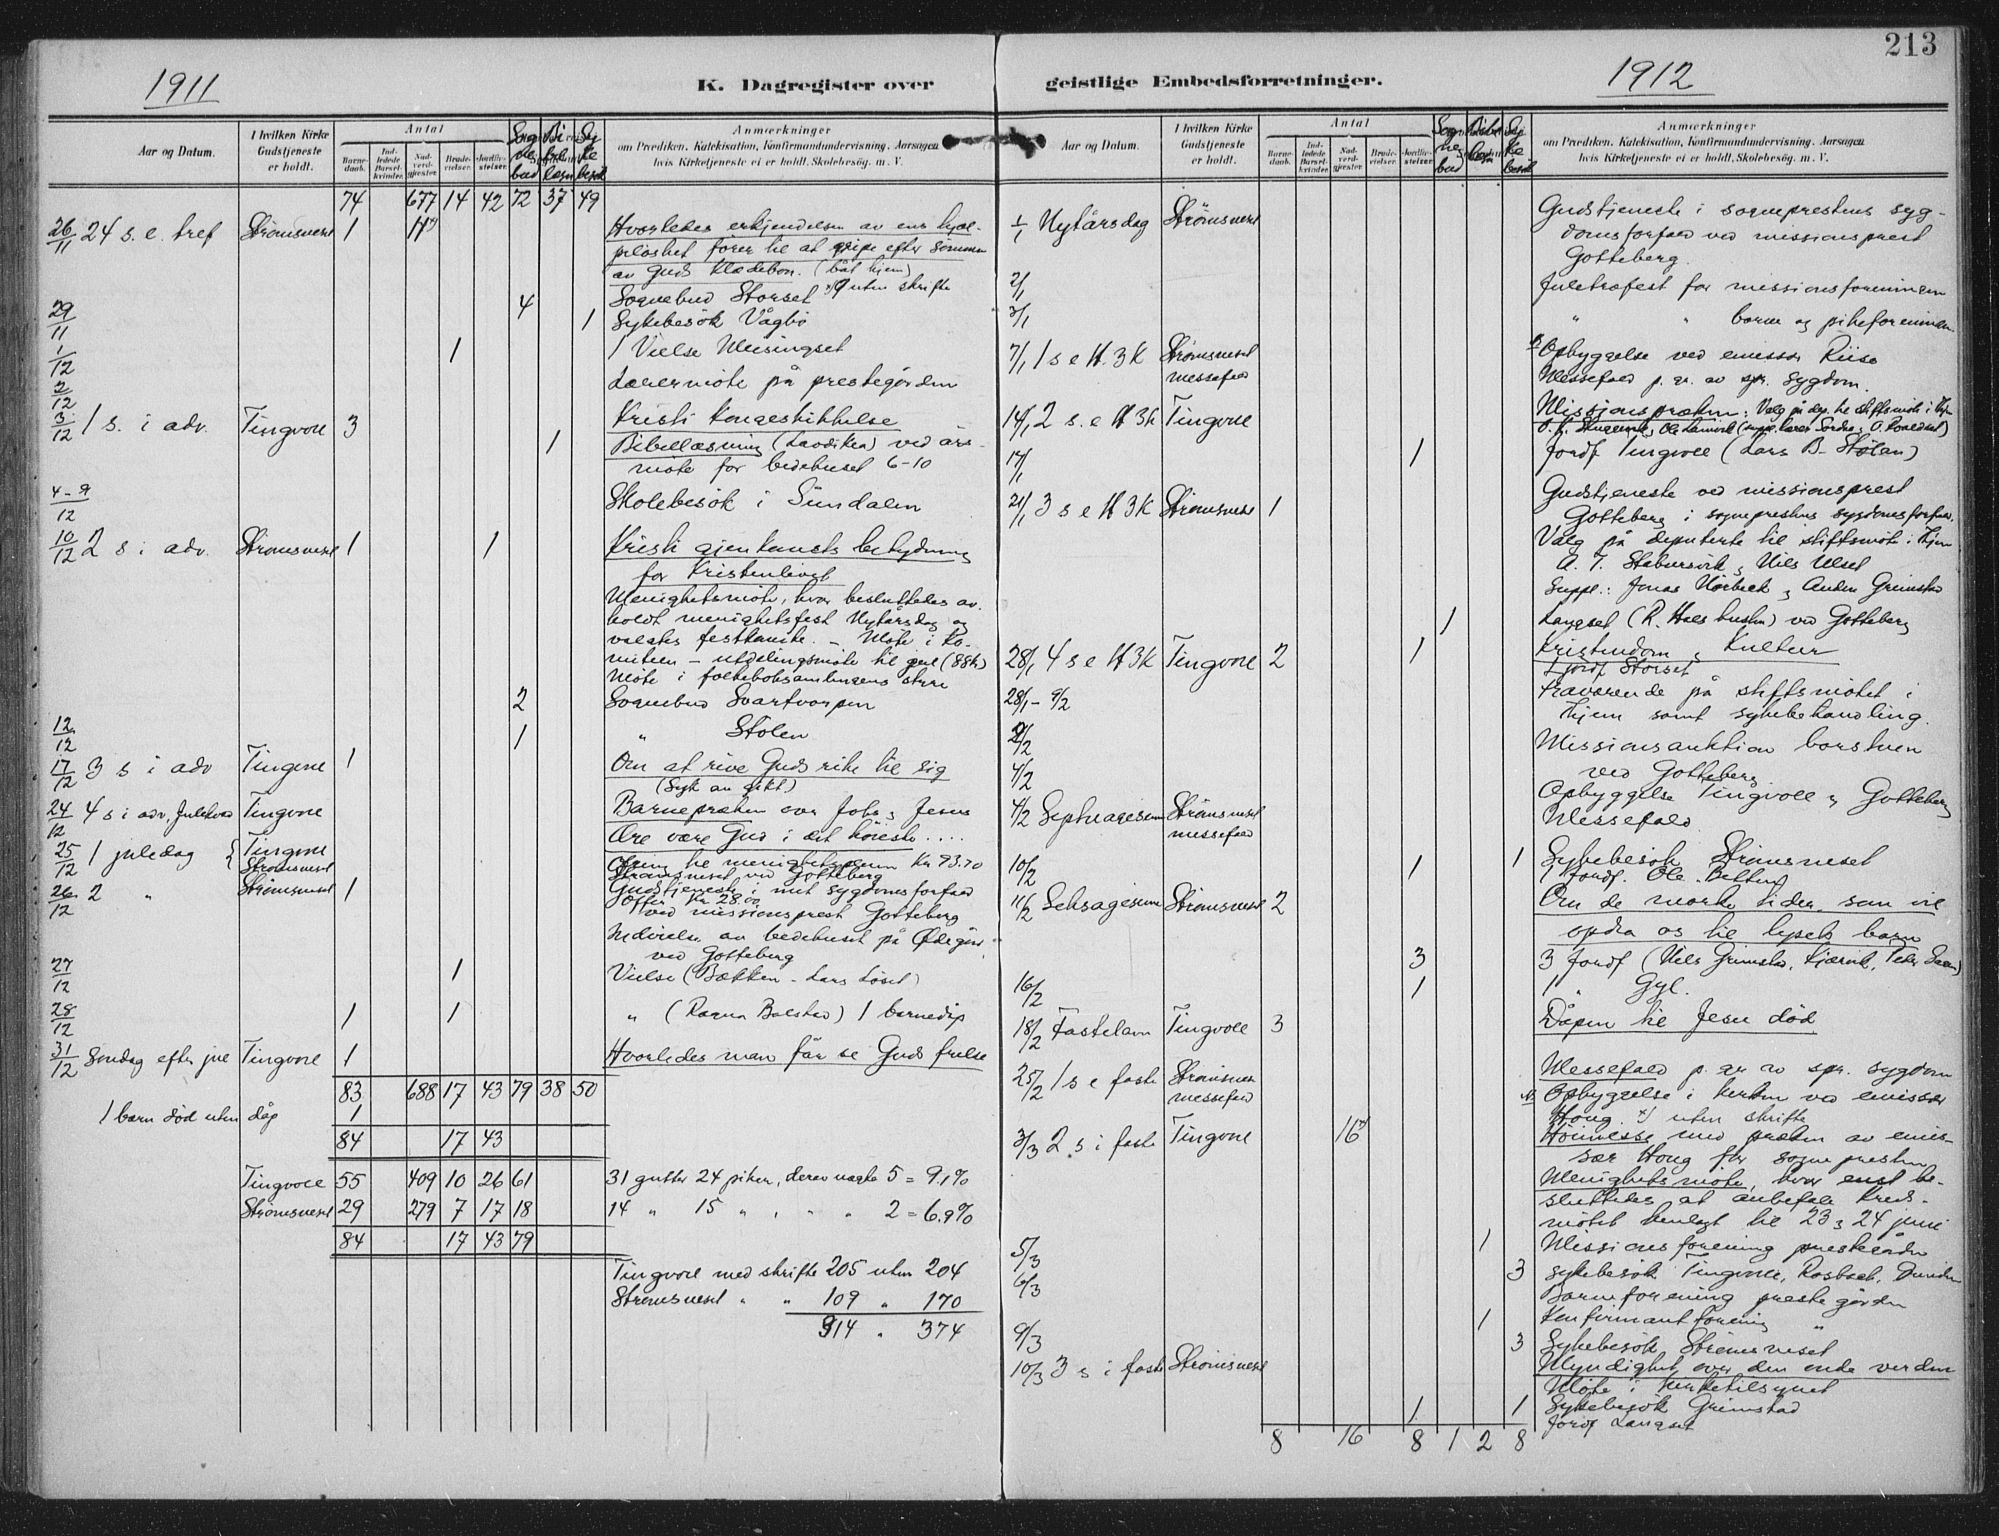 213
1911
K. Dagregister over
Aar og Datum.
I hvilken Kirke
Gudstjeneste
er holdt.
Antal
Barne-
daab.
Ind-
ledede
Barsel-
kvinder.
Nad-
verd-
gjester.
Brude-
vielser.
Jordfæ-
stelser.
Sog
ne
bud
Bi
bel
læsn
Sy
ke
besøk
Anmærkninger
om Prædiken, Katekisation, Konfirmandundervisning, Aarsagen
hvis Kirketjeneste ei er holdt, Skolebesøg. m. V.
74 677 14 42 72 37 49
26/11 24 s. e. tref Strömsnest 1 11 Hvorledes erkjendelsen av ens hjæl-
pløshet fører til at gripe efter sömmen
av Guds klædebon. (båt hjem)
4 Sognebud Storset 9 uten skrifte
29/11 1 Sykebesök Vågbö
1/12 1 1 Vielse Meisingset
2/12 Lærermöte på prestegården
3/12 1 s. i adv. Tingvoll 3 Kristi kongeskikkelse
1 Bibellæsning (Laodikea) ved års-
möte for bedehuset 6-10
4-9/12 Skolebesök i Sundalen
10/12 2 s i adv. Strömsneset 1 1 Kristi gjenkomsts betydning
for Kristenlivet
Menighetsmöte, hvor besluttedes av-
holdt menighetsfest Nytårsdag og
valgtes festkomite. - Möte i ko-
miteen - utdelingsmöte til jul (88 kr)
Möte i folkeboksamlingens styre
2 Sognebud Svartvorpen
12/12 1 " Stolen
17/12 3 s i adv Tingvoll 1 Om at rive Guds rike til sig
(Syk av gikt)
24/12 4 s i adv, Julekvæld Tingvoll Barnepræken over Johs & Jesus
25/12 1 juledag { Tingvoll Ære være Gud i det höieste ....
Strömsneset Ofring til menighetspleien Kr 93.70
Strömsneset ved Gotteberg
26/12 2 " Strömsneset 1 Gudstjeneste i mit sygdomsforfald
Offer Kr 28.00
ved missionsprest Gotteberg
Indvielse av bedehuset på Ødegård
ved Gotteberg
27/12 1 Vielse (Bækken - Lars Löset)
28/12 1 1 " (Ragna Bolstad) 1 barnedåp
31/12 Söndag efter jul Tingvoll 1 Hvorledes man får se Guds frelse
83 688 17 43 79 38 50
1 barn död uten dåp 1
84 17 43
Tingvoll 55 409 10 26 61 31 gutter 24 piker, derav uægte 5 = 9,1%
Strömsneset 29 279 7 17 18 14 " 15 " , " " 2 = 6.9%
84 17 43 79
Tingvoll med skrifte 205 uten 204
Strömsneset " " 109 " 170
314 " 374
geistlige Embedsforretninger.
1912
Aar og Datum.
I hvilken Kirke
Gudstjeneste
er holdt.
Antal
Barne-
daab.
Ind-
ledede
Barsel-
kvinder.
Nad-
verd-
gjester.
Brude-
vielser.
Jordfæ-
stelser.
Sog
ne
bud
Bibel
læsn
Sy
ke
besøk
Anmærkninger
om Prædiken, Katekisation, Konfirmandundervisning, Aarsagen
hvis Kirketjeneste ei er holdt, Skolebesøg. m. V.
1/1 Nytårsdag Strömsneset Gudstjeneste i sogneprestens syg-
domsforfald ved missionsprest
Gotteberg.
2/1 Juletræfest for missionsforeningen
3/1 " " barne og pikeforeningen
7/1 1 s e H. 3 K Strömsneset Opbyggelse ved emissær Riise
messefald Messefald p. gr. av spr. sygdom.
14/1 2 s. e H 3 K Tingvoll Missionspræken: Valg på dep. til stiftsmöte i Kr.
17/1 1 Jordf Tingvoll (Lars B. Stölan)
21/1 3 s e H 3K Strömsneset 1 Gudstjeneste ved missionsprest
Gotteberg i sogneprestens sygdomsforfald.
Valg på deputerte til stiftsmöte i
A. T. Stabursvik & Nils Ulset
Suppl.: Jonas Hörbeck & Anders Grimstad
1 Langset (R. Hals hustru) ved Gotteberg
28/1 4 s e H 3K Tingvoll 2 1 Kristendom & Kultur
1 jordf Storset
28/1 - 9/2 Fraværende på stiftsmötet i
samt sykebehandling.
2/2 Missionsauktion borstuen
4/2 ved Gotteberg
Opbyggelse Tingvoll v Gotteberg
4/2 Septuagesima Strömsneset Messefald
messefald
10/2 1 1 Sykebesök Strömsneset
1 jordf. Ole
11/2 Seksagesima Strömsneset 2 Om de mörke tider som vil
opdra os til lysets barn
3 3 Jordf (Nils Grimstad, Kjærvik, Peder
16/2 1 1 " Gyl.
18/2 Fastelavn Tingvoll 3 Dåpen til Jesu död
25/2 1 s e faste Strömsnes Messefald p. gr av spr. sygdom
messefald Opbyggelse i kirken ved emissær
Houg x) uten skrifte
3/3 2 s i faste Tingvoll 16 Höimesse med præken av emis-
sær Houg for sognepresten
Menighetsmöte, hvor enst be-
sluttedes at anbefale kreds-
mötet henlagt til 23 & 24 juni
5/3 1 Missionsforening prestegården
6/3 3 Sykebesök Tingvoll, Rosback,
Barneforening prestegården
9/3 1 Konfirmantforening "
3 Sykebesök Strömsneset
10/3 3 s i faste Strömsneset Myndighet over den onde verden
Möte i kirketilsynet
1 1 Sykebesök Grimstad
Jordf Langset
8 16 8 1 2 8